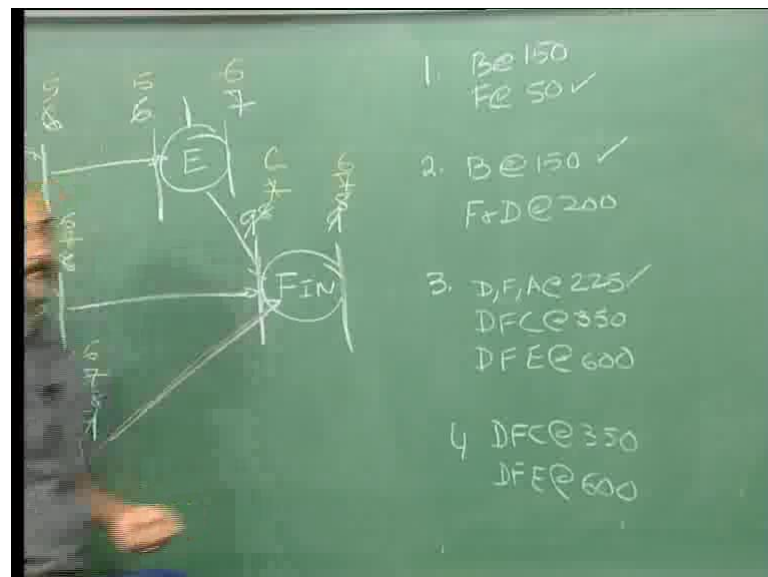 5
6
8
5
6
6
7
E
6
7
8
9
6
7
8
9
FIN
5
7
8
6
7
8
9
1. B@ 150
F@ 50 ✓
2. B @ 150 ✓
F&D @ 200
3. D,F,A@ 225 ✓
DFC@ 350
DFE@ 600
4 DFC@ 350
DFE@ 600